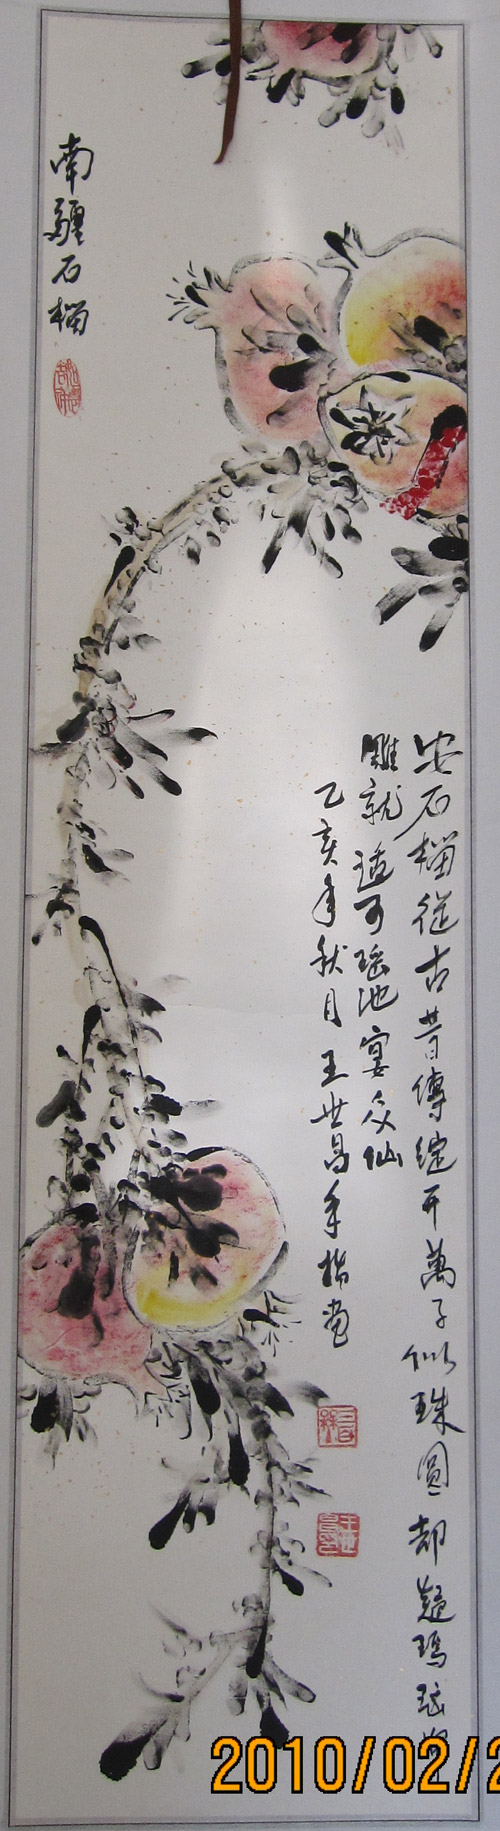 南疆石榴
安石榴從古昔傳綻开萬子似珠圓却疑瑪瑙
雕就适可瑶池宴众仙
乙亥年秋月王世昌手指画
2010/02/2